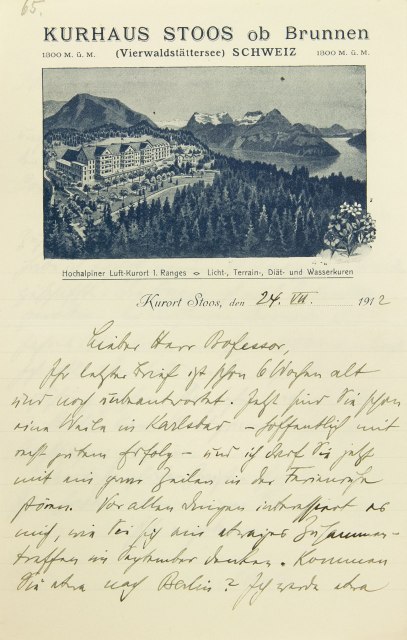 65.
KURHAUS STOOS ob Brunnen
1300 M. ü. M. (Vierwaldstättersee) SCHWEIZ 1300 M. ü. M.
Hochalpiner Luft-Kurort 1. Ranges Licht-, Terrain-, Diät- und Wasserkuren
Kurort Stoos, den 24. VII. 1912
Lieber Herr Professor,
Ihr letzter Brief ist schon 6 Wochen alt
und noch unbeantwortet. Jetzt sind Sie schon
eine Weile in Karlsbad – hoffentlich mit
recht gutem Erfolg – und ich darf Sie jetzt
mit ein paar Zeilen in der Ferienruhe
stören. Vor allen Dingen interessiert es
mich, wie Sie sich ein etwaiges Zusammen-
treffen im September denken. Kommen
Sie etwa nach Berlin? Ich werde etwa